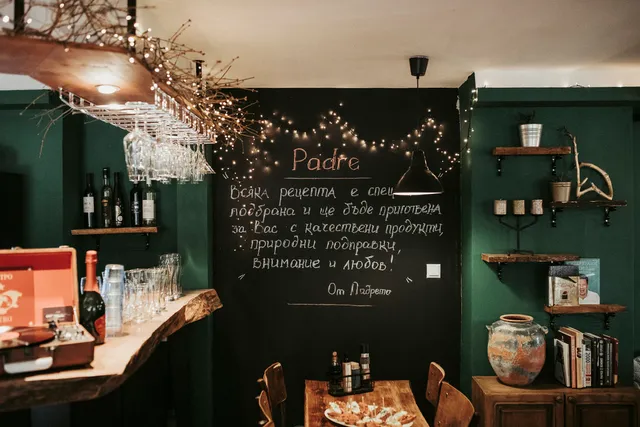 Padre
Всяка рецепта е спец
подбрана и ще бъде приготвена
за Вас с качествени продукти,
природни подправки,
внимание и любов!
От Падрето